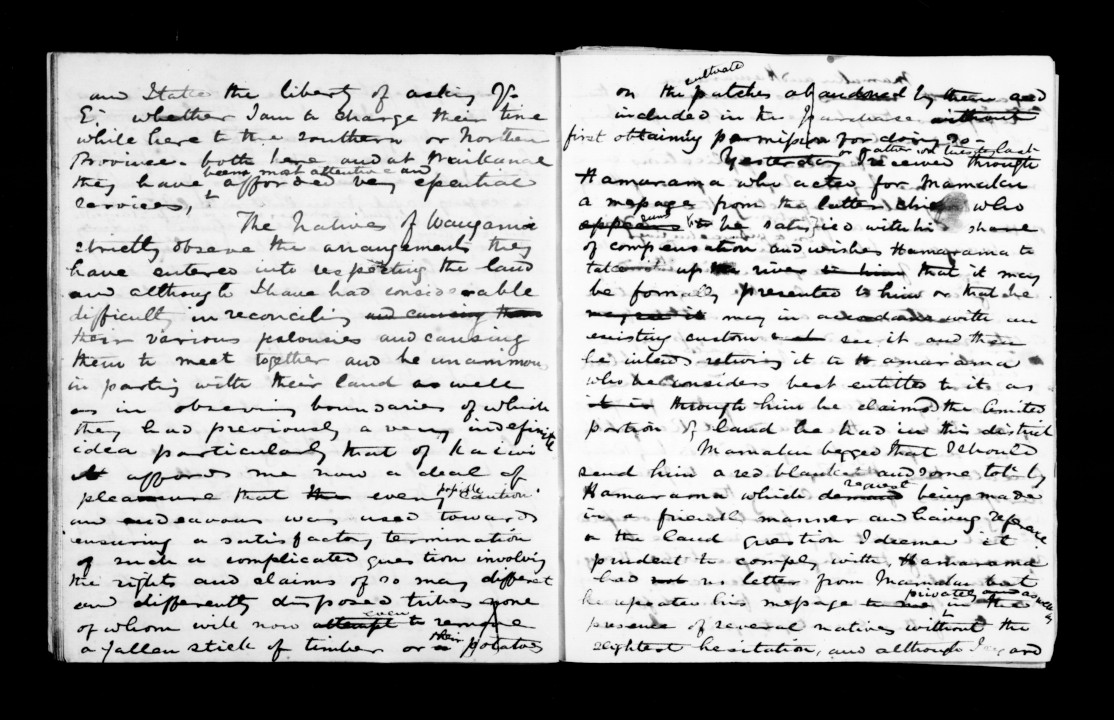 and State the liberty of asking Yr
E. whether I am to charge their time
while here to the southern or Northern
Province. both here and at Waikanae
been most attentive and
they have afforded very essential
services,
The Natives of Wanganui
strictly observe the arrangements they
have entered into respecting the land
and although I have had considerable
difficulty in reconciling and causing them
their various jealousies and causing
them to meet together and be unanimous
in parting with their land as well
as in observing boundaries of which
they had previously a very indefinite
idea particularly that of Kaiwi
It affords me now a deal of
possible
pleasure that the every caution
and endeavour was used towards
ensuring a satisfactory termination
of such a complicated question involving
the rights and claims of so many different
and differently disposed tribes none
even
of whom will now attempt to remove
their
a fallen stick of timber or a potatoe
cultivate
on the patches abandoned by them and
included in the purchase without
first obtaining permission for doing so.
or rather last
Yesterday I received through
Hamarama who acted for Mamaku
a message from the latter chief who
appears to be satisfied with his share
of compensation and wishes Hamarama to
take up the river to him that it may
be formally presented to him or that he
may in accordance with an
existing custom see it and then
he intends returning it to Hamarama
who he considers best entitled to it as
it is through him he claimed the limited
portion of land he had in this district
Mamaku begged that I should
send him a red blanket and some tobo by
request
Hamarama which demand being made
in a friendly manner and having reference
to the land question I deemed it
prudent to comply with, Hamarama
had not no letter from Mamaku but
privately and as well
he repeated his message to me in the
presence of several natives without the
slightest hesitation, and although I and